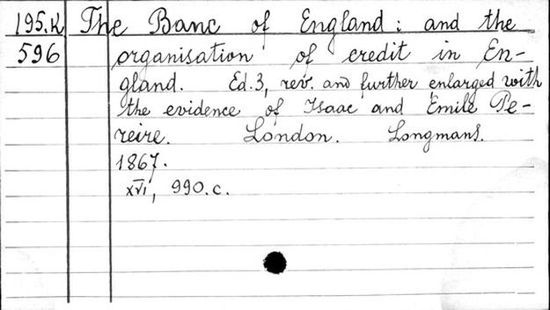 195.K The Banc of England : and the
596 organisation of credit in En-
gland. Ed.3, rev. and further enlarged with
the evidence of Isaac and Emile Pe-
reire. London. Longmans.
1867.
XVI, 990.c.